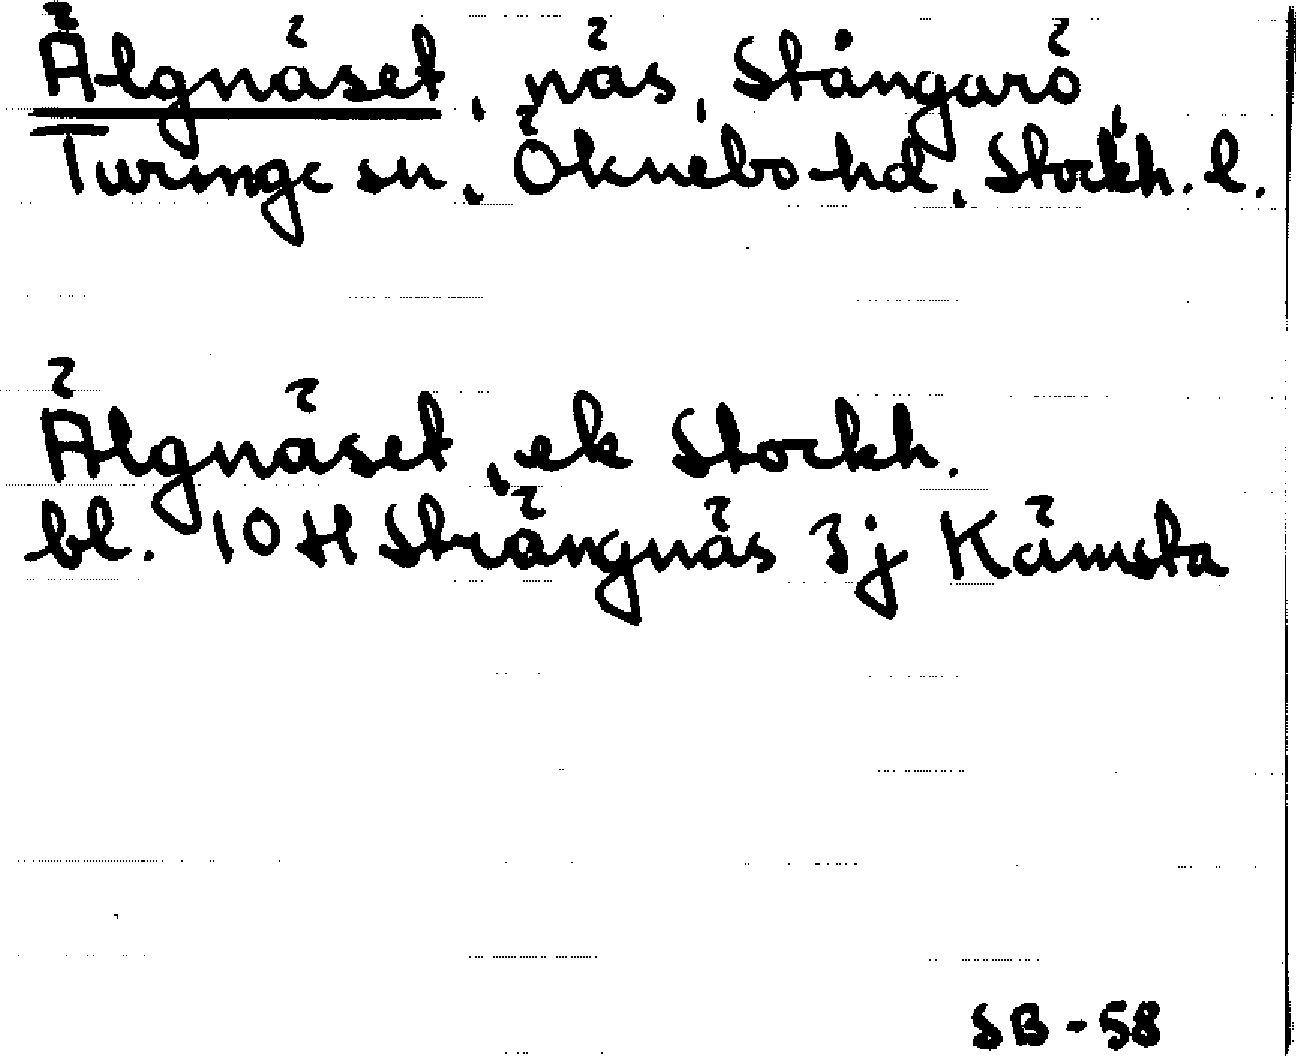 Älgnäset, näs, Stångarö,
Turinge sn, Öknebo hd, Stockh. l.
Älgnäset, ek Stockh.
bl. 10 H Strängnäs 3j Kämsta
SB - 58